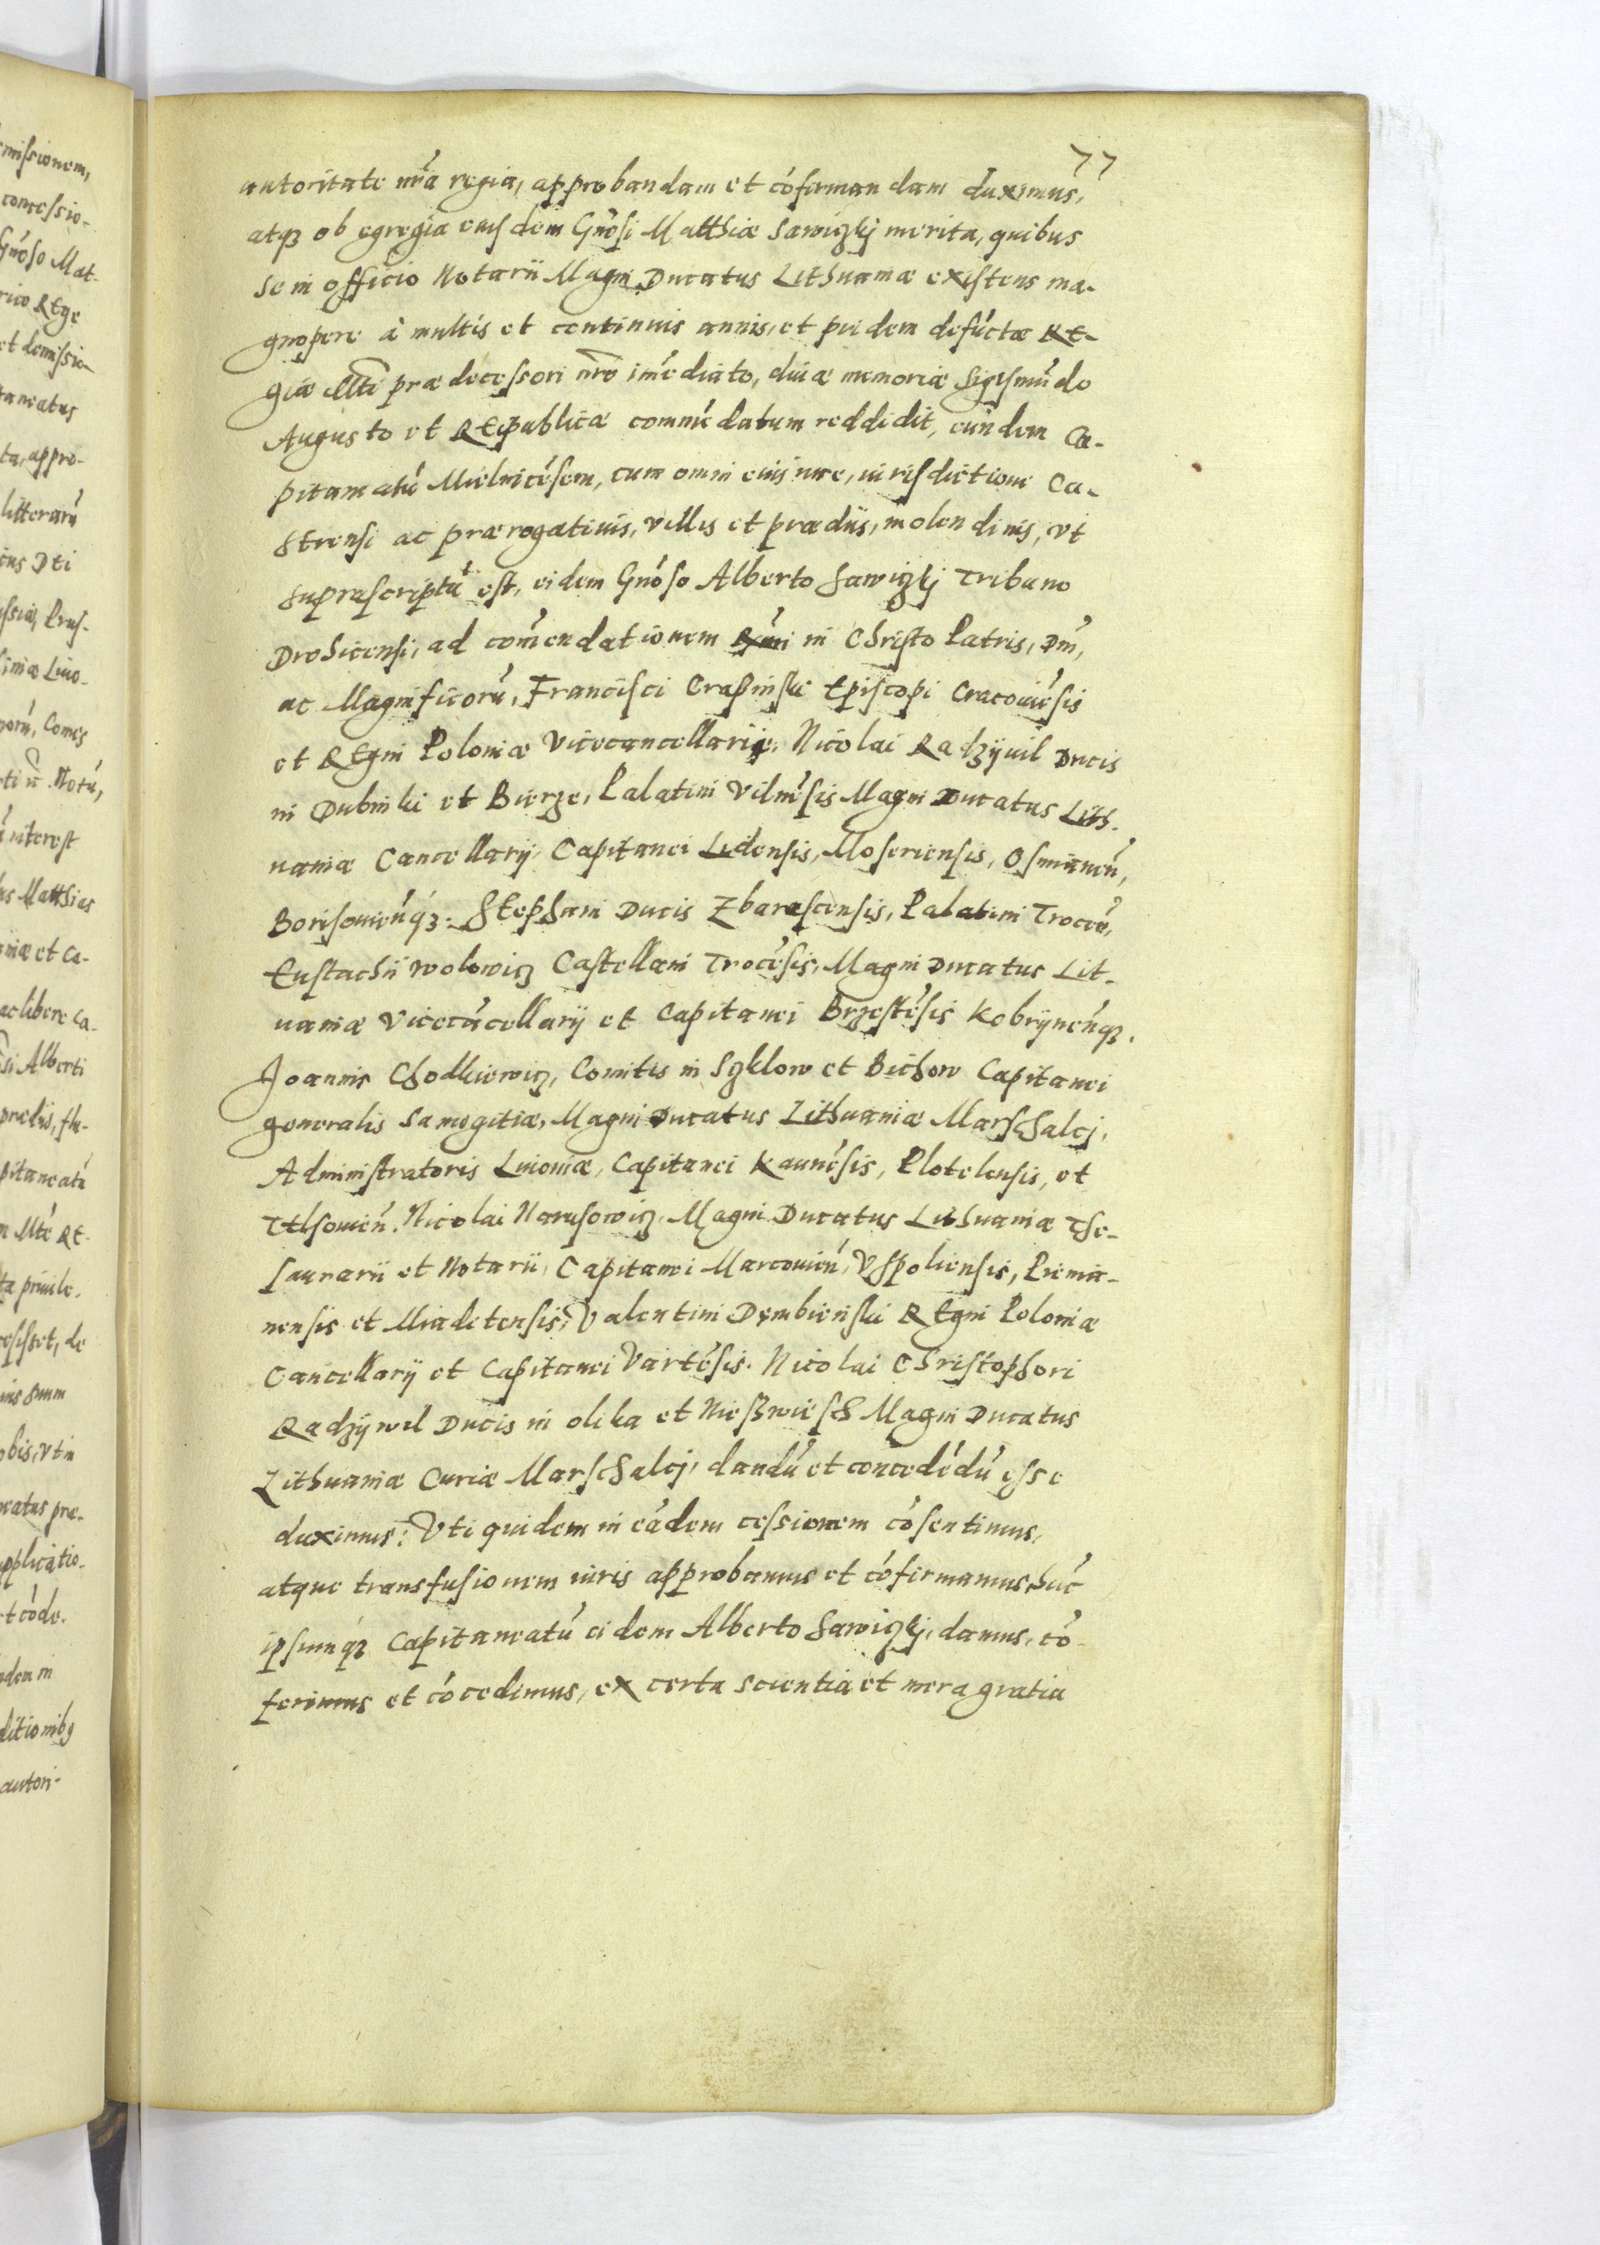 77
autoritate nr̃a regia, approbandam et cófirmandam duximus,
atqꝫ ob egregia eiusdem Gnósi Matthiæ Sawiczkj merita, quibus
se in officio Notarii Magni Ducatus Lithuaniæ existens ma-
gnopere à multis et continuis annis, et pridem defúctæ Re-
giæ Mti prædecessori nr̃o imédiato, diuæ memoriæ Sigismúdo
Augusto et Reipublicæ comédatum reddidit, eundem Ca-
pitaneatú Mielnicésem, cum omni eius iure, iurisdictione Ca-
strensi ac prærogatiuis, villis et prædiis, molendinis, vt
suprascriptú est, eidem Gnóso Alberto Sawiczkj Tribuno
Drohicensi, ad coméndationem Rmi in Christo Patris, Dni,
ac Magnificorú, Francisci Crasinski Episcopi Cracouiésis
et Regni Poloniæ Vicecancellarij, Nicolai Radzijuil Ducis
in Dubinki et Bierze, Palatini Vilnésis Magni Ducatus Lith-
uaniæ Cancellarij, Capitanei Lidensis, Moseriensis, Osmianeń,
Borisouieńqꝫ. Stephani Ducis Zbarascensis, Palatini Troceń,
Eustachii Wolowicz Castellani Trocésis, Magni Ducatus Lit-
uaniæ Vicecácellarij et Capitanei Brzestésis Kobrijneńqꝫ.
Joannis Chodkiewicz, Comitis in Szklow et Bichow Capitanei
generalis Samogitiæ, Magni Ducatus Lithuaniæ Marschalcj,
Administratoris Liuoniæ, Capitanei Kaunésis, Plotelensis, et
Telsouień. Nicolai Narusowicz, Magni Ducatus Lithuaniæ The-
saurarii et Notarii, Capitanei Marcouień, Vspoliensis, Pienia-
nensis et Miadetensis, Valentini Dembienski Regni Poloniæ
Cancellarij et Capitanei Vartésis. Nicolai Christophori
Radzijwil Ducis in olika et Nieszwiesch Magni Ducatus
Lithuaniæ Curiæ Marschalcj, dandú et concedédú esse
duximus: Vti quidem in eádem cessionem cósentimus,
atque transfusionem iuris approbamus et cófirmamus, húc
ipsumqꝫ Capitaneatú eidem Alberto Sawiczkj, damus, có-
ferimus et cócedimus, ex certa scientia et mera gratia